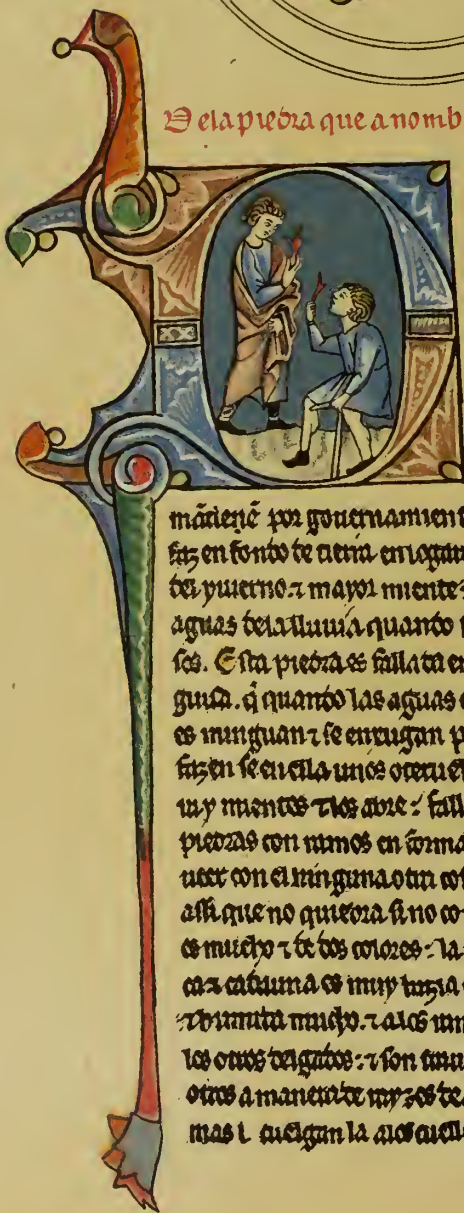 De la piedra que a nomb
mãtienẽ por gouernamient
faz en fondo de tierra en logar
del yuierno. ⁊ mayor miente
aguas dela lluuia quando
ses. Esta piedra es fallada en
guisa. q̃ quando las aguas
es minguan ⁊ se enxugan p
fazen se en ella unos
uẏ mientos ⁊ los abre fall
piedras con ramos en forma
con el ninguna otra co
assi que no quiebra si no co
es mucho ⁊ de dos colores la
ca ⁊ cadauna es muy luzia
mucho. ⁊ a los
los otros delgados ⁊ son
otros a manera de rayzes de
mas l cuelgan la alos cuell